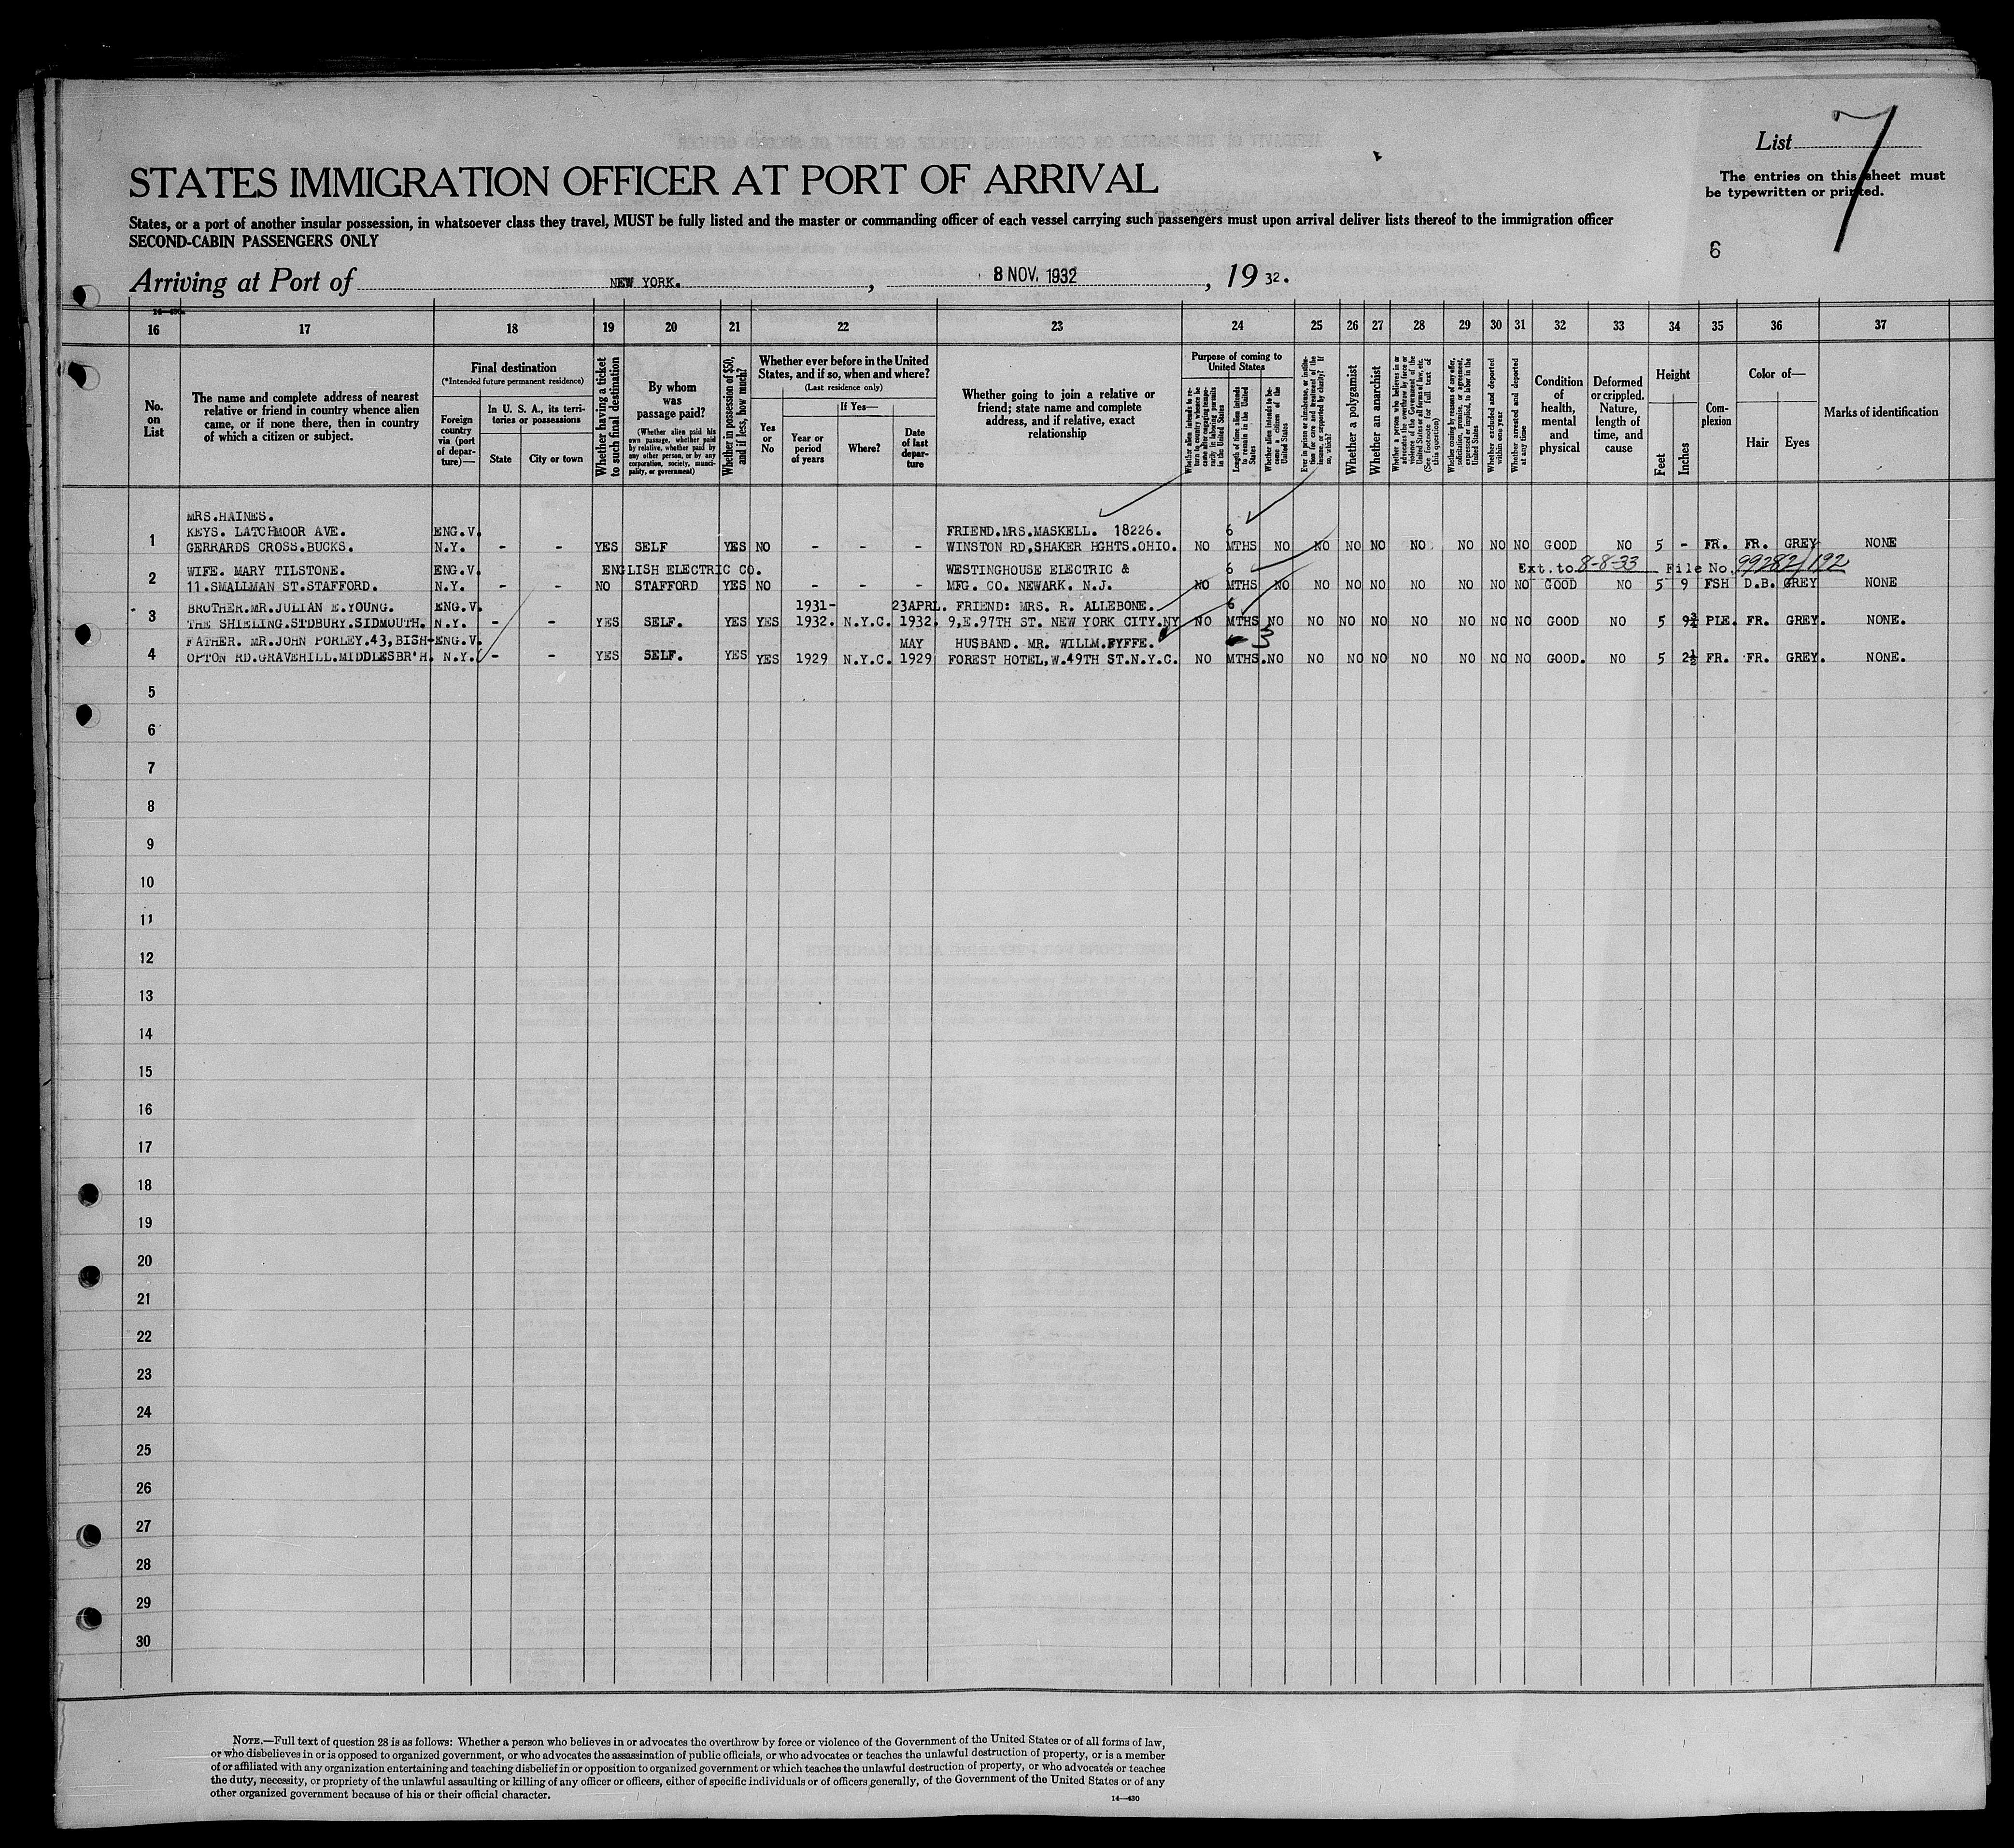 List 7
STATES IMMIGRATION OFFICER AT PORT OF ARRIVAL
The entries on this sheet must
be typewritten or printed.
States, or a port of another insular possession, in whatsoever class they travel, MUST be fully listed and the master or commanding officer of each vessel carrying such passengers must upon arrival deliver lists thereof to the immigration officer
SECOND-CABIN PASSENGERS ONLY
6
Arriving at Port of NEW YORK. , 8 NOV. 1932 , 19 32.
16 17 18 19 20 21 22 23 24 25 26 27 28 29 30 31 32 33 34 35 36 37
No.
on
List
The name and complete address of nearest
relative or friend in country whence alien
came, or if none there, then in country
of which a citizen or subject.
Final destination
(*Intended future permanent residence)
Foreign
country
via (port
of depar-
ture)—
In U. S. A., its terri-
tories or possessions
State
City or town
Whether having a ticket
to such final destination
By whom
was
passage paid?
(Whether alien paid his
own passage, whether paid
by relative, whether paid by
any other person, or by any
corporation, society, munici-
pality, or government)
Whether in possession of $50,
and if less, how much?
Whether ever before in the United
States, and if so, when and where?
(Last residence only)
Yes
or
No
If Yes—
Year or
period
of years
Where?
Date
of last
depar-
ture
Whether going to join a relative or
friend; state name and complete
address, and if relative, exact
relationship
Purpose of coming to
United States
Whether alien intends to re-
turn to country whence he
came after engaging tempo-
rarily in laboring pursuits
in the United States
Length of time alien intends
to remain in the United
States
Whether alien intends to be-
come a citizen of the
United States
Ever in prison or almshouse, or institu-
tion for care and treatment of the
insane, or supported by charity? If
so, which?
Whether a polygamist
Whether an anarchist
Whether a person who believes in or
advocates the overthrow by force or
violence of the Government of the
United States or all forms of law, etc.
(See footnote for full text of
this question)
Whether coming by reasons of any offer,
solicitation, promise, or agreement,
expressed or implied, to labor in the
United States
Whether excluded and deported
within one year
Whether arrested and deported
at any time
Condition
of
health,
mental
and
physical
Deformed
or crippled.
Nature,
length of
time, and
cause
Height
Feet
Inches
Com-
plexion
Color of—
Hair
Eyes
Marks of identification
MRS.HAINES.
KEYS. LATCHMOOR AVE. ENG.V. FRIEND.MRS.MASKELL. 18226. 6
1 GERRARDS CROSS.BUCKS. N.Y. - - YES SELF YES NO - - - WINSTON RD,SHAKER HGHTS.OHIO. NO MTHS NO NO NO NO NO NO NO NO GOOD NO 5 - FR. FR. GREY NONE
WIFE. MARY TILSTONE. ENG.V. ENGLISH ELECTRIC CO. WESTINGHOUSE ELECTRIC & 6 Ext.to 8-8-33 File No. 99282/192
2 11.SMALLMAN ST.STAFFORD. N.Y. - - NO STAFFORD YES NO - - - MFG. CO. NEWARK. N.J. NO MTHS NO NO NO NO NO NO NO NO GOOD NO 5 9 FSH D.B. GREY NONE
BROTHER.MR.JULIAN E.YOUNG. ENG.V. 1931- 23APRL. FRIEND: MRS. R. ALLEBONE. 6
3 THE SHIELING.SIDBURY.SIDMOUTH. N.Y. - - YES SELF. YES YES 1932. N.Y.C. 1932. 9,E.97TH ST. NEW YORK CITY.NY NO MTHS NO NO NO NO NO NO NO NO GOOD NO 5 9¾ PLE. FR. GREY. NONE.
FATHER. MR.JOHN PURLEY.43,BISH- ENG.V. MAY HUSBAND. MR. WILLM.FYFFE. 3
4 OPTON RD.GRAVEHILL.MIDDLESBR'H. N.Y. - - YES SELF. YES YES 1929 N.Y.C. 1929 FOREST HOTEL,W.49TH ST.N.Y.C. NO MTHS. NO NO NO NO NO NO NO NO GOOD. NO 5 2½ FR. FR. GREY. NONE.
5
6
7
8
9
10
11
12
13
14
15
16
17
18
19
20
21
22
23
24
25
26
27
28
29
30
NOTE.—Full text of question 28 is as follows: Whether a person who believes in or advocates the overthrow by force or violence of the Government of the United States or of all forms of law,
or who disbelieves in or is opposed to organized government, or who advocates the assassination of public officials, or who advocates or teaches the unlawful destruction of property, or is a member
of or affiliated with any organization entertaining and teaching disbelief in or opposition to organized government or which teaches the unlawful destruction of property, or who advocates or teaches
the duty, necessity, or propriety of the unlawful assaulting or killing of any officer or officers, either of specific individuals or of officers generally, of the Government of the United States or of any
other organized government because of his or their official character.
14—430